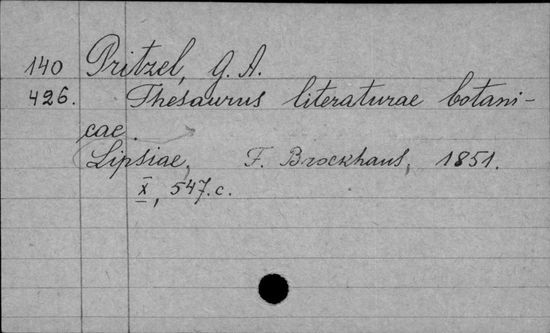 140 Pritzel, G. A.
426. Thesaurus literaturae botani-
cae.
Lipsiae, F. Brockhaus, 1851.
X, 547. c.